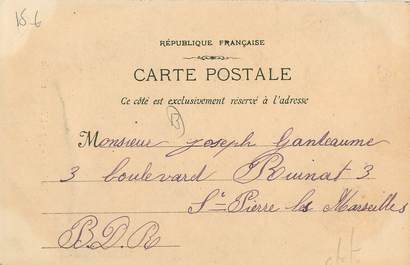 15-6
RÉPUBLIQUE FRANÇAISE
CARTE POSTALE
Ce côté est exclusivement réservé à l'adresse
Monsieur Joseph Ganteaume
3 boulevard Ruinat 3
St Pierre les Marseilles
B.D.R